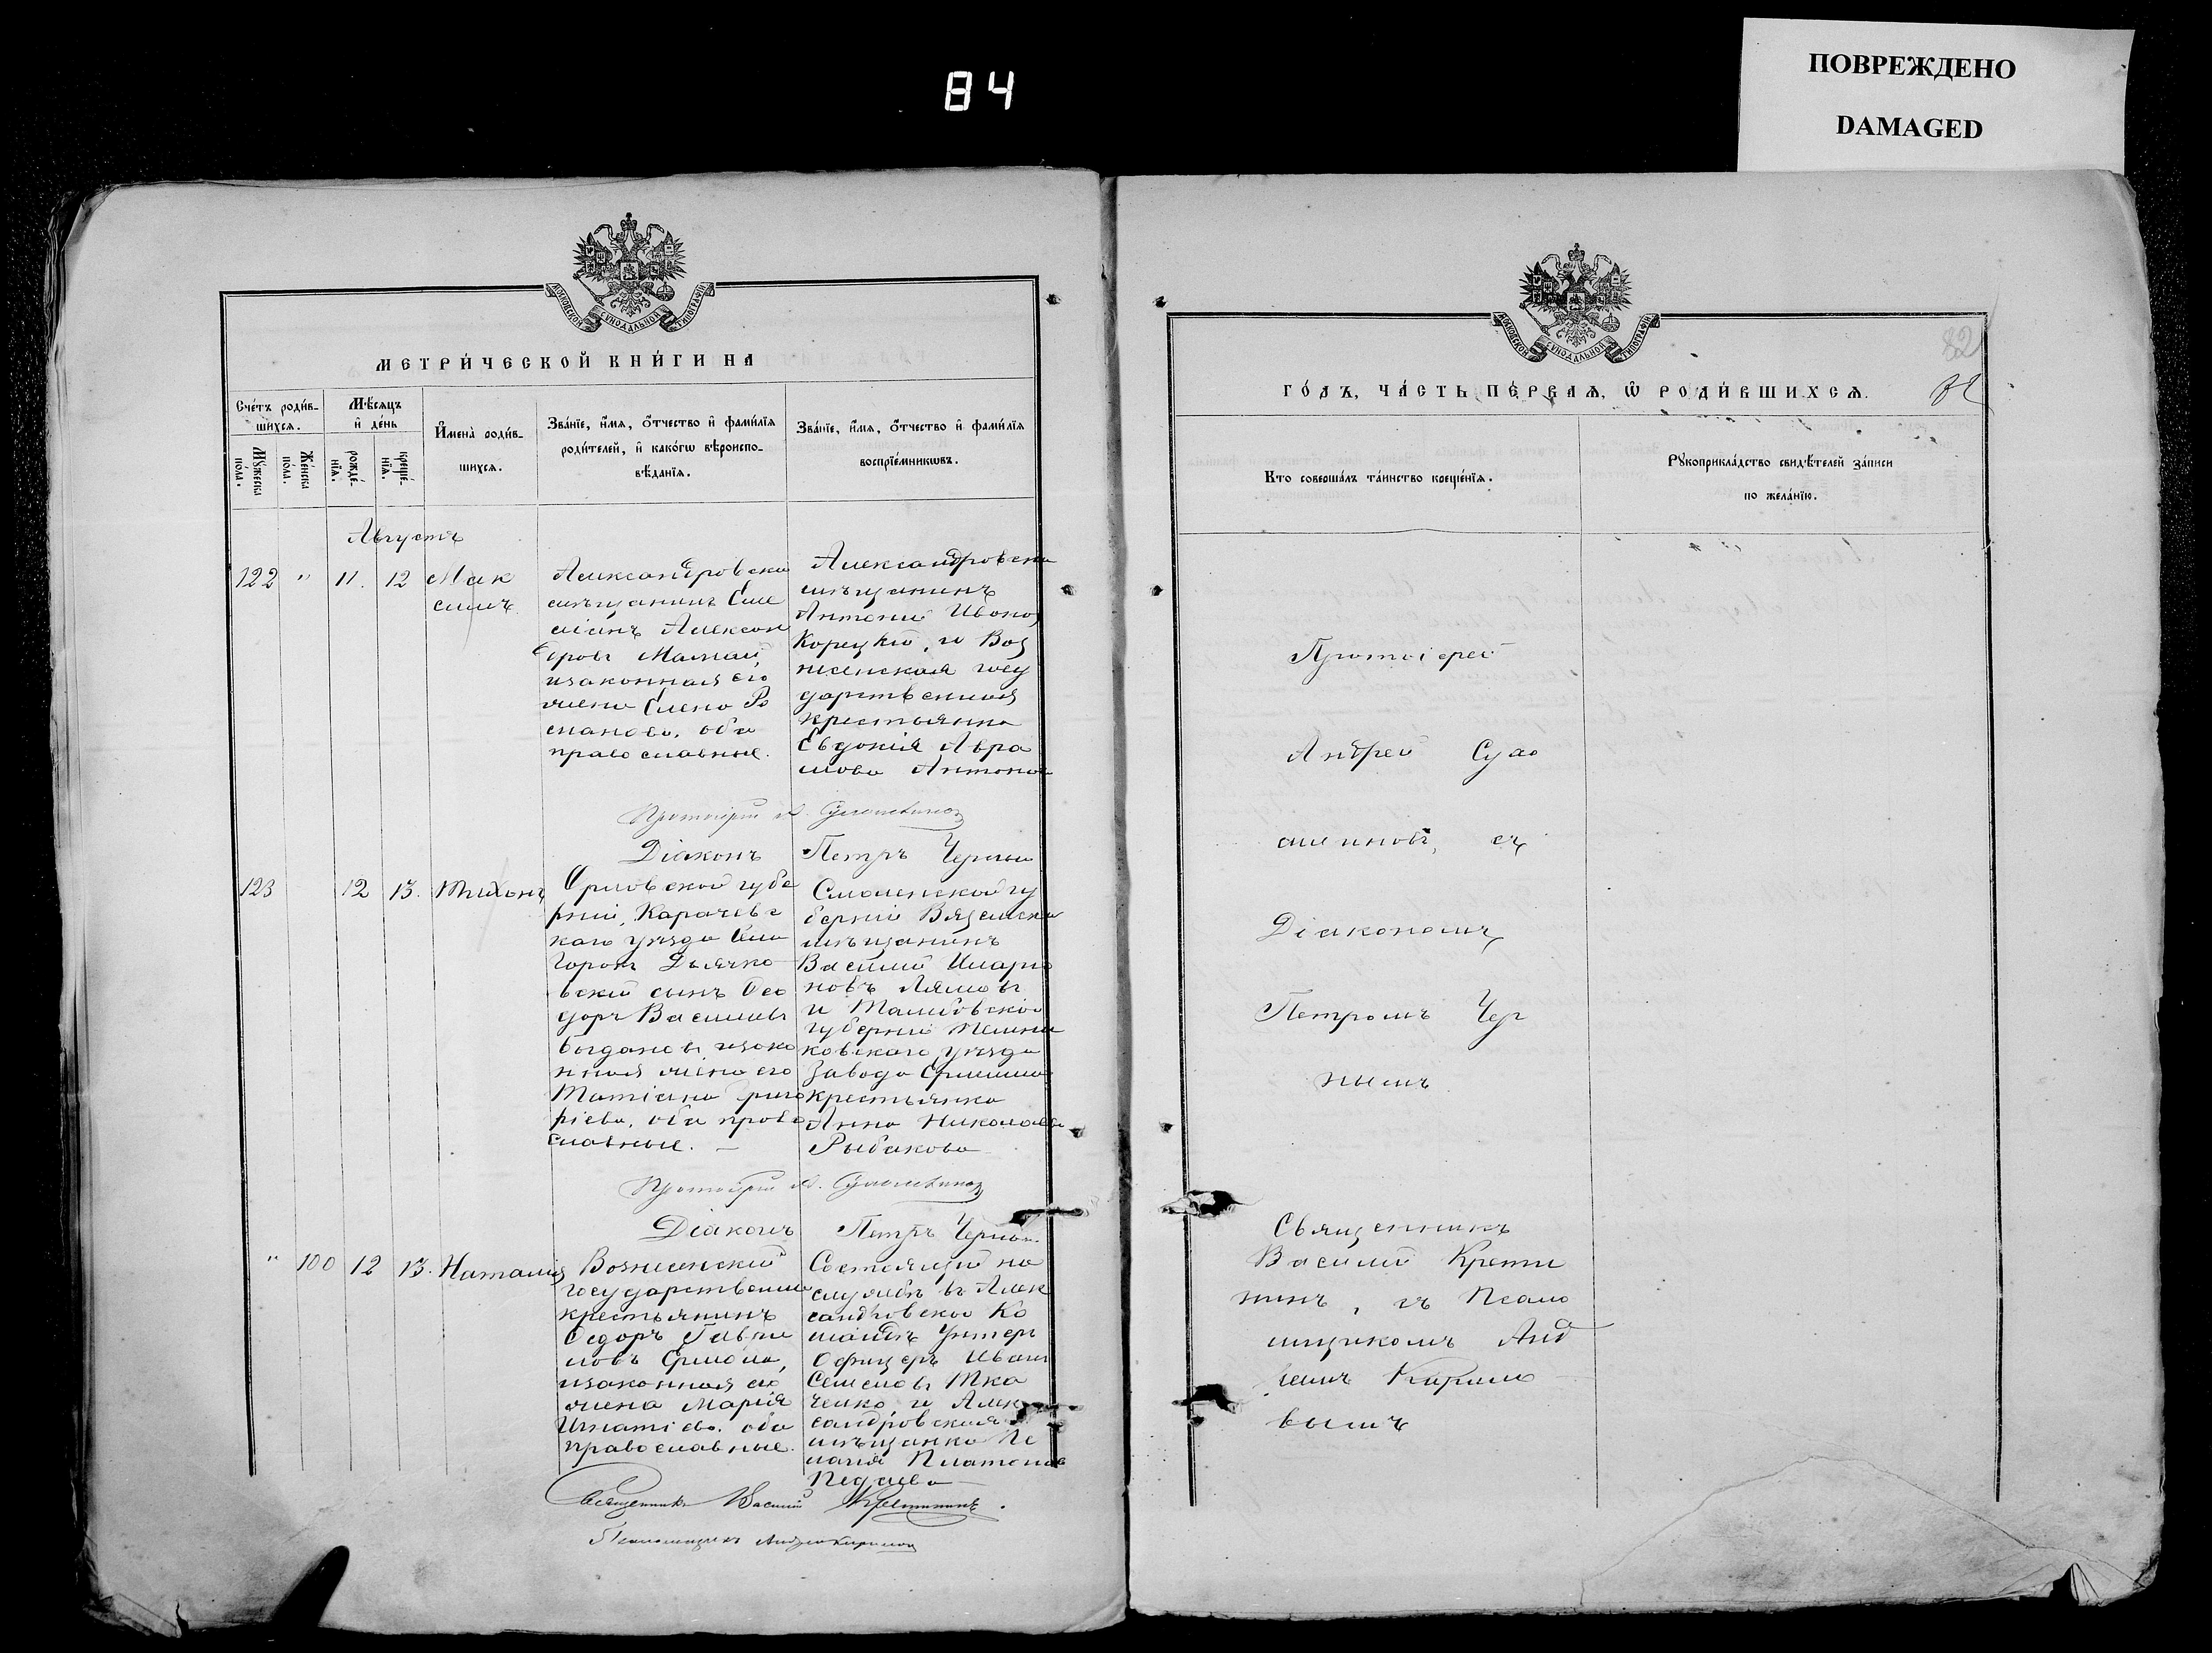 84
ПОВРЕЖДЕНО
DAMAGED
МОСКОВСКОЙ СѴНОДАЛЬНОЙ ТИПОГРАФІИ
МЕТРИ́ЧЕСКОЙ КНИ́ГИ НА
Сче́тъ роди́в-
шихсѧ.
Мꙋ́жеска по́ла.
Же́нска по́ла.
Мѣ́сѧцъ
и҆ де́нь
рожде́-
нїѧ.
креще́-
нїѧ.
И҆мена̀ роди́в-
шихсѧ.
Зва́нїе, и҆́мѧ, ѻ҆́тчество и҆ фами́лїѧ
роди́телей, и҆ како́гѡ вѣроиспо-
вѣ́данїѧ.
Зва́нїе, и҆́мѧ, ѻ҆́тчество и҆ фами́лїѧ
воспрїе́мникѡвъ.
Августъ
122 " 11. 12 Мак
симъ
Александровски
мѣщанинъ Сим
еіонъ Алексан
дровъ Мамай,
изаконная его
жена Елена Ро
манова, оба
православные.
Александровски
мѣщанинъ
Антоній Иванов
Корецкій, и Воз
несенская госу
дарственная
крестьянка
Евдокія Авра
мова Антонов
Протоіерей А.
Діаконъ Петръ Черный
123 12 13. Тихонъ
Орловской губе
рніи, Карачевс
каго уѣзда
вскій сынъ Ѳео
доръ Васильевъ
Богдановъ, изако
нная жена его
Татіана Григо
ріева, оба право
славные. —
Смоленской гу
берніи Вяземски
мѣщанинъ
Василій Иларіо
новъ Ляховъ
и Тамбовской
губерніи Темни
ковскаго уѣзда
Завода
крестьянка
Анна Николаева
Рыбакова
Протоіерей А.
Діаконъ Петръ Черный
" 100 12 13. Наталія
Вознесенскій
государственны
крестьянинъ
Ѳедоръ Гаври
ловъ Ермола,
изаконная его
жена Марія
Игнатіева. оба
православные.
Состоящій на
службѣ въ Алек
сандровской Ко
мандѣ Унтеръ
Офицеръ Иванъ
Семеновъ Тка
ченко, и Алек
сандровская
мѣщанка Пе
лагія Платонов
Педаева
Священникъ Василій Кретининъ.
Псаломщикъ Андрей Кириловъ
МОСКОВСКОЙ СѴНОДАЛЬНОЙ ТИПОГРАФІИ
82
82
ГО́ДЪ, ЧА́СТЬ ПЕ́РВАѦ, Ѽ РОДИ́ВШИХСѦ.
Кто соверша́лъ та́инство креще́нїѧ.
Рꙋкоприкла́дство свидѣ́телей за́писи
по жела́нїю.
Протоіерей
Андрей Сул
оменовъ, съ
Діакономъ
Петромъ Чер
нымъ
Священникъ
Василій Крети
нинъ, съ Псало
мщикомъ Анд
реемъ Кирило
вымъ